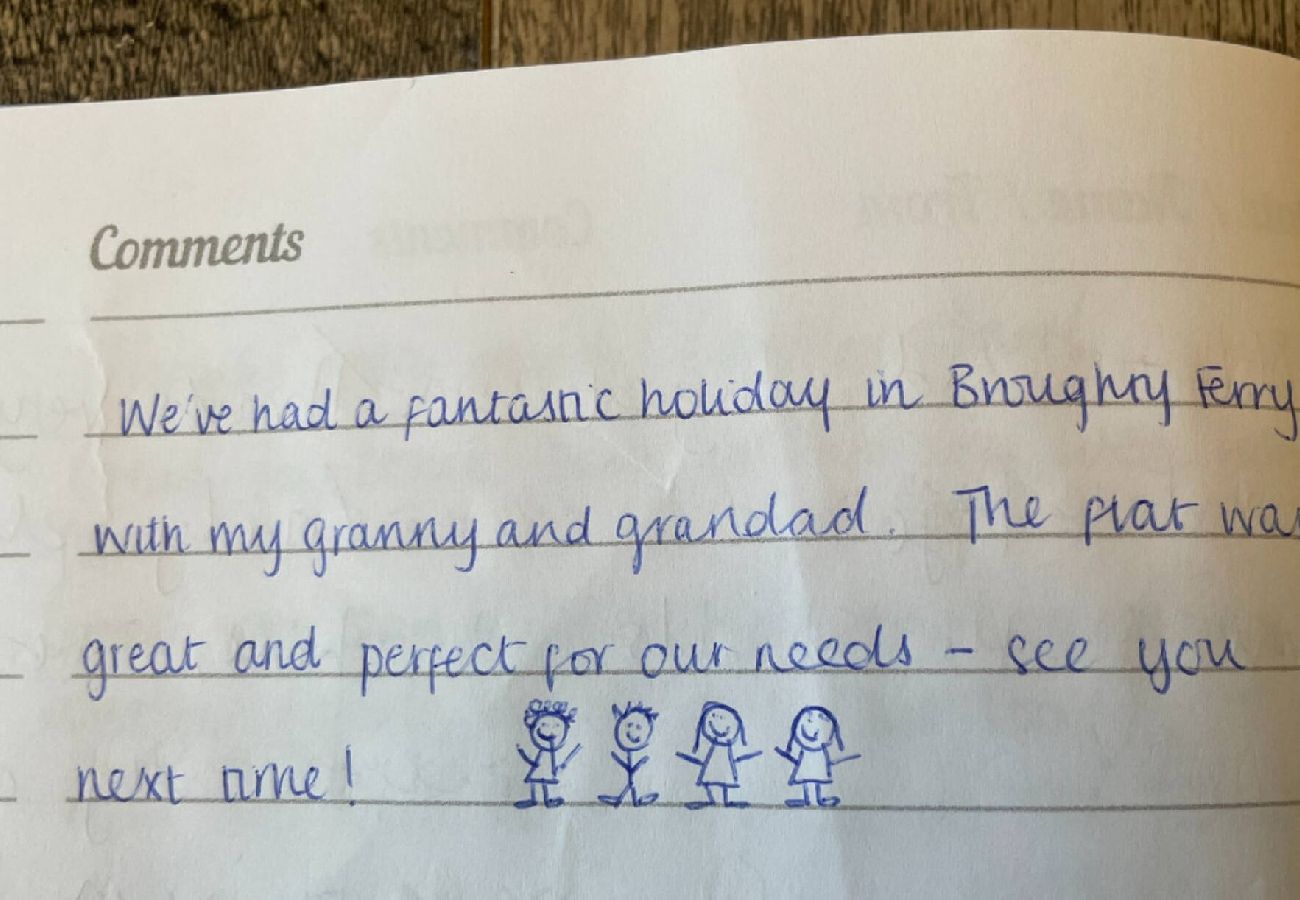 Comments
We've had a fantastic holiday in Broughty Ferry
with my granny and grandad. The flat wa
great and perfect for our needs – see you
next time!